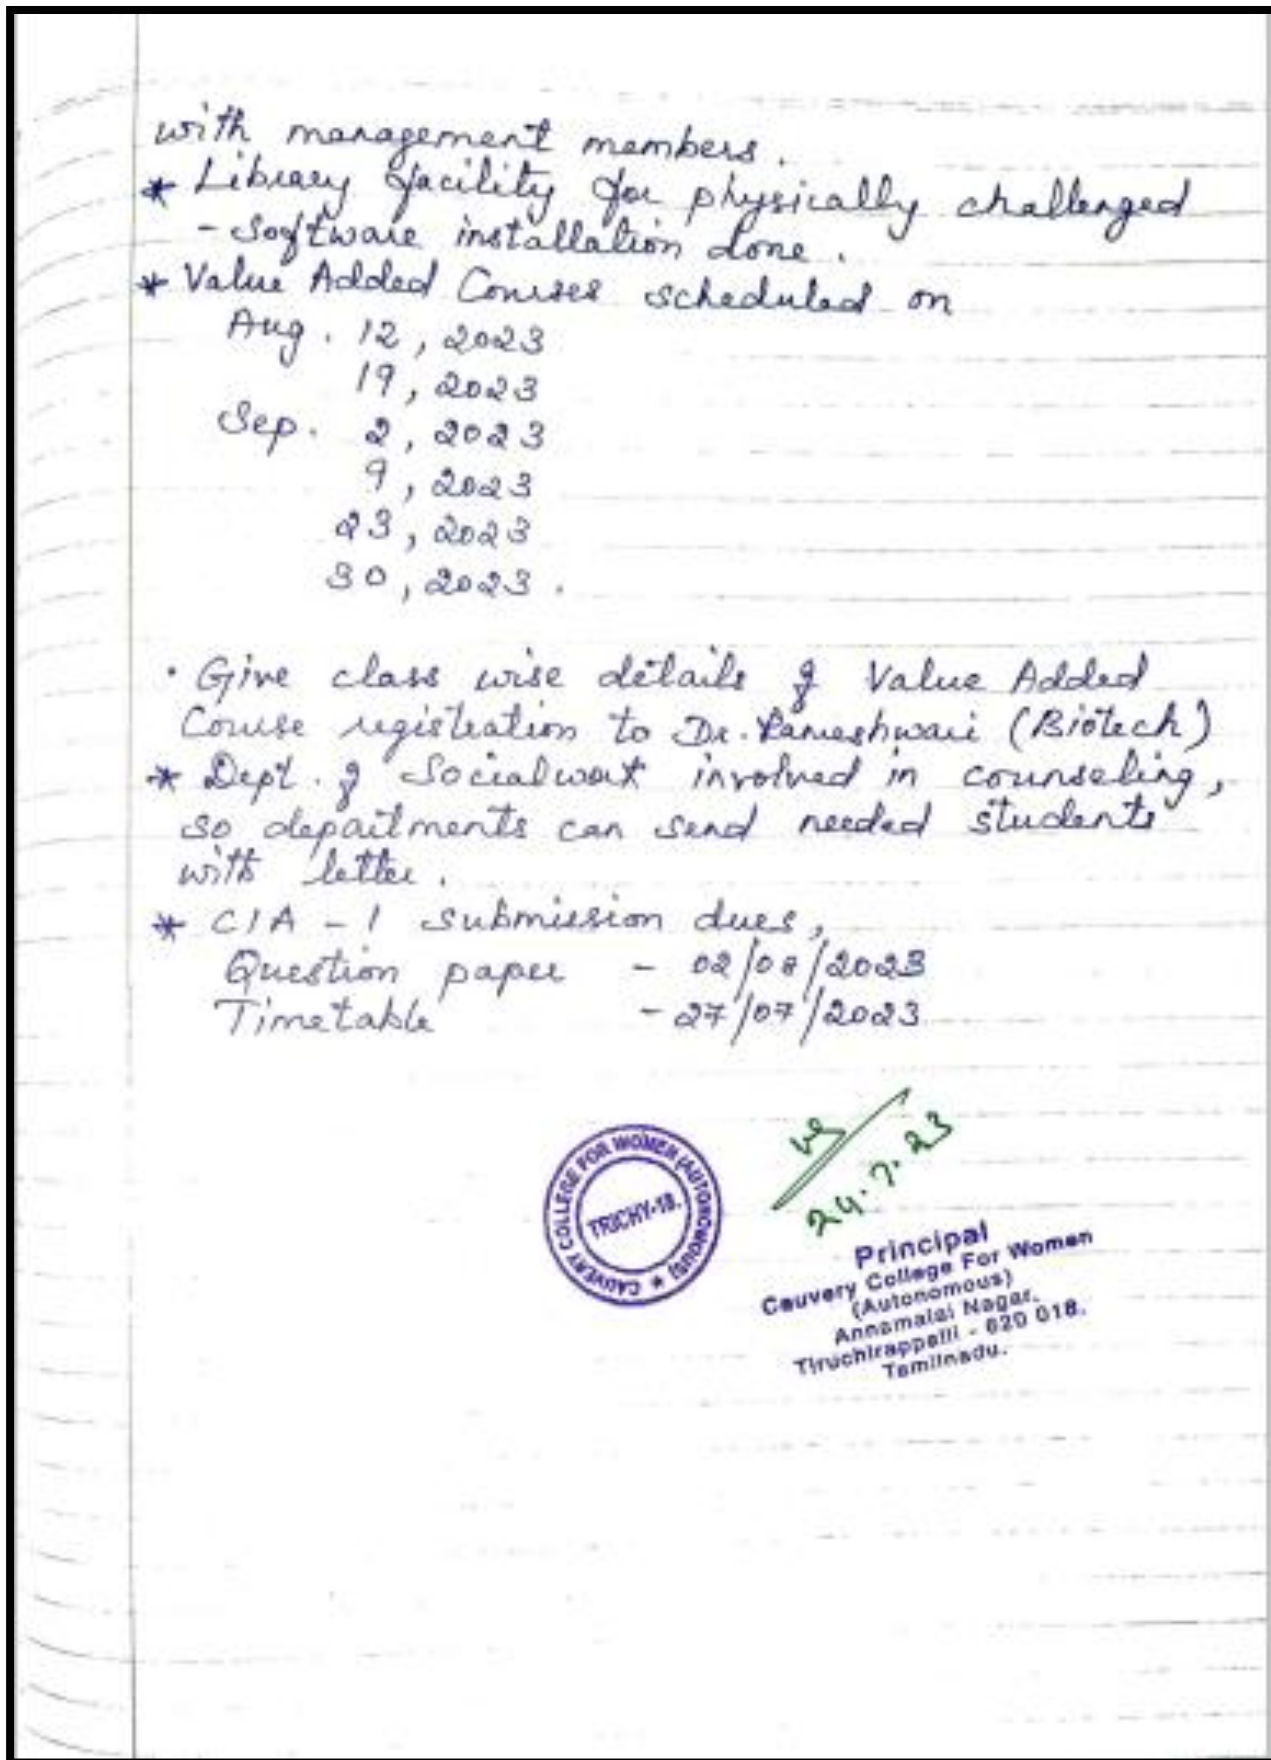 with management members.
* Library facility for physically challenged
- Software installation done.
* Value Added Courses scheduled on
Aug. 12, 2023
19, 2023
Sep. 2, 2023
9, 2023
23, 2023
30, 2023.
· Give class wise details of Value Added
Course registration to Dr. Rameshwari (Biotech)
* Dept. of Socialwork involved in counseling,
so departments can send needed students
with letter.
* CIA - 1 submission dues,
Question paper - 02/08/2023
Timetable - 27/07/2023
CAUVERY COLLEGE FOR WOMEN (AUTONOMOUS) ★
TRICHY-18.
24.7.23
Principal
Cauvery College For Women
(Autonomous)
Annamalai Nagar,
Tiruchirappalli - 620 018.
Tamilnadu.